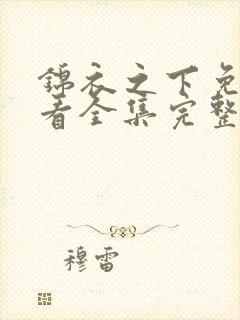 锦衣之下免
看全集完整
穆雷